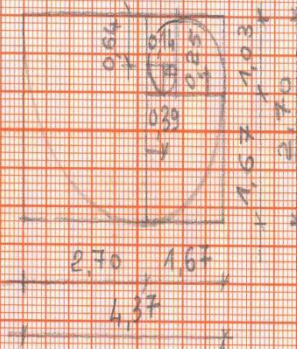 0,64
0,25
1,03
0,39
1,67
2,70
2,70 1,67
4,37